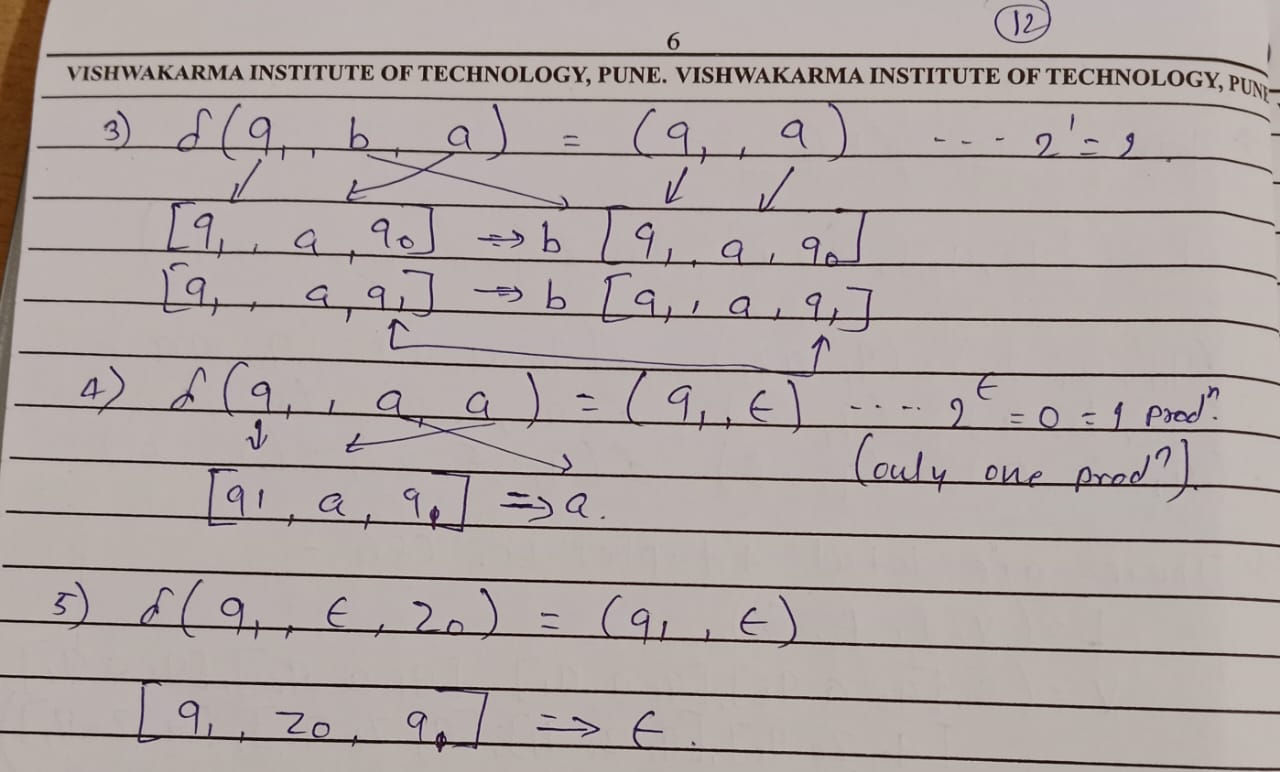 12
6
VISHWAKARMA INSTITUTE OF TECHNOLOGY, PUNE. VISHWAKARMA INSTITUTE OF TECHNOLOGY, PUNE
3) δ(q₁, b, a) = (q₁, a) ---- 2¹ = 2
[q₁, a, q₀] ⇒ b [q₁, a, q₀]
[q₁, a, q₁] ⇒ b [q₁, a, q₁]
4) δ(q₁, a, a) = (q₁, ε) ---- 2^ε = 0 = 1 prodⁿ.
(only one prodⁿ).
[q1, a, q₁] ⇒ a.
5) δ(q₁, ε, z₀) = (q₁, ε)
[q₁, z₀, q₁] ⇒ ε.